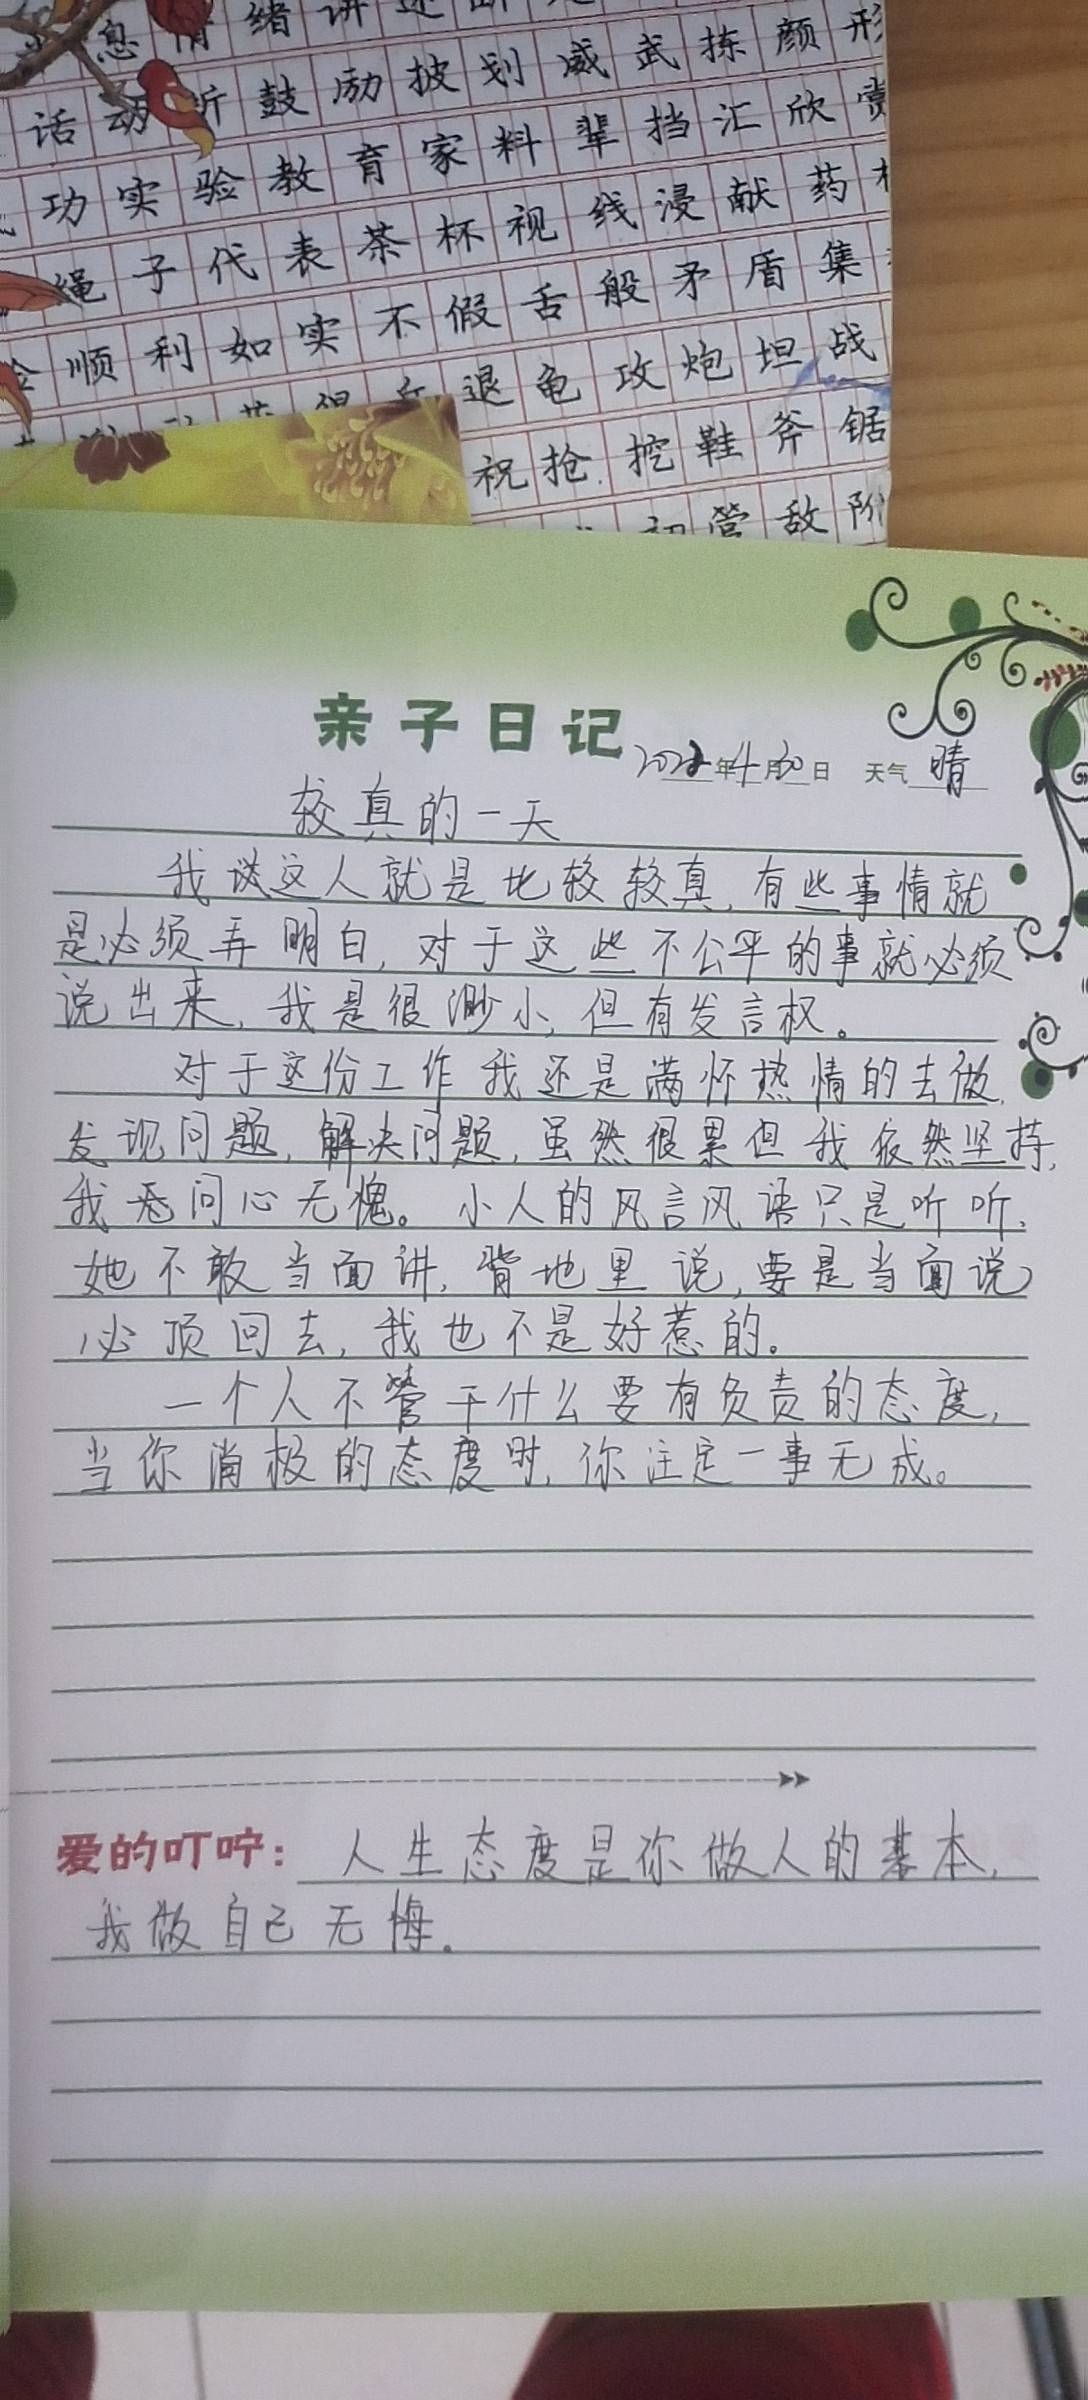 息情绪讲述
话动听鼓励披划威武拣颜形
功实验教育家料辈挡汇欣赏
绳子代表茶杯视线浸献药
顺利如实不假舌般矛盾集
退龟攻炮坦战
祝抢挖鞋斧锯
营敌阶
亲子日记
2022年4月30日 天气晴
较真的一天
我谈这人就是比较较真,有些事情就
是必须弄明白,对于这些不公平的事就必须
说出来,我是很渺小,但有发言权。
对于这份工作我还是满怀热情的去做,
发现问题,解决问题,虽然很累但我依然坚持,
我问心无愧。小人的风言风语只是听听,
她不敢当面讲,背地里说,要是当面说
必顶回去,我也不是好惹的。
一个人不管干什么要有负责的态度,
当你消极的态度时,你注定一事无成。
爱的叮咛:人生态度是你做人的基本,
我做自己无悔.